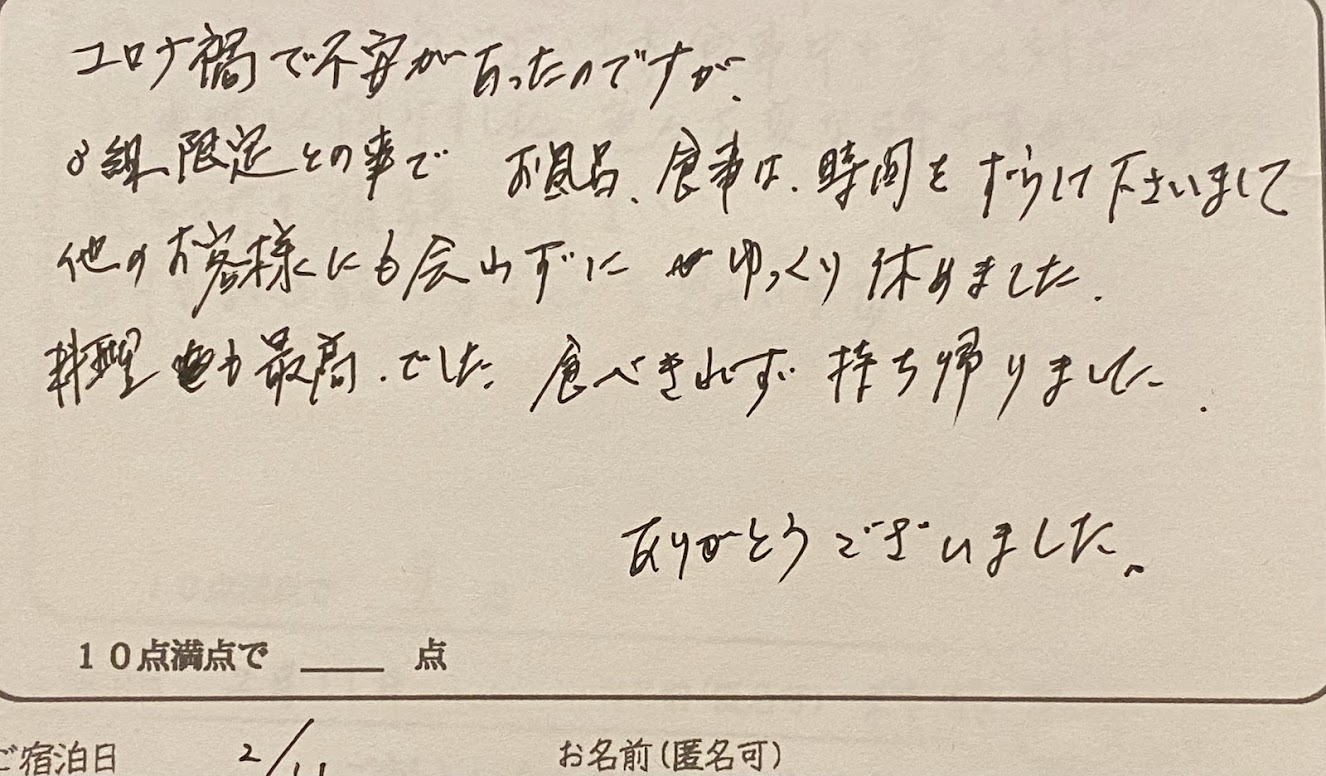 コロナ禍で不安があったのですが、
8組限定との事で お風呂、食事は、時間をずらして下さいまして
他のお客様にも会わずに ゆっくり休めました。
料理も最高でした。食べきれず持ち帰りました。
ありがとうございました。
10点満点で ____ 点
ご宿泊日 2/11 お名前(匿名可)